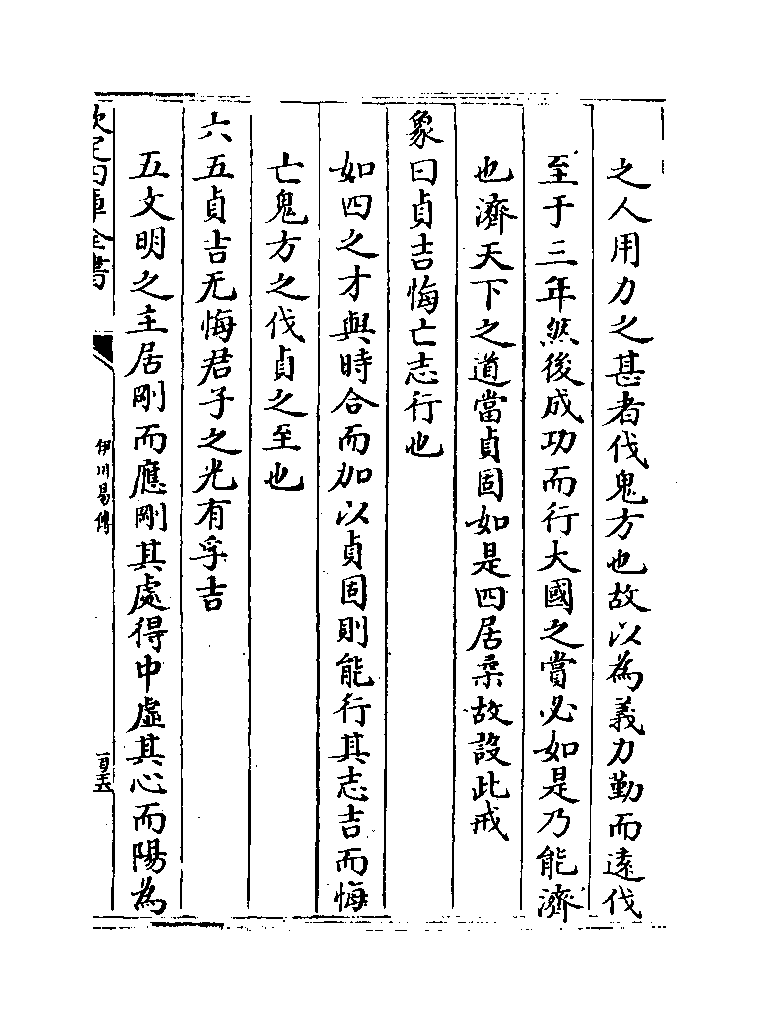 之人用力之甚者伐鬼方也故以為義力勤而遠伐
至于三年然後成功而行大國之賞必如是乃能濟
也濟天下之道當貞固如是四居柔故設此戒
象曰貞吉悔亡志行也
如四之才與時合而加以貞固則能行其志吉而悔
亡鬼方之伐貞之至也
六五貞吉无悔君子之光有孚吉
五文明之主居剛而應剛其處得中虛其心而陽為
欽定四庫全書
伊川易傳